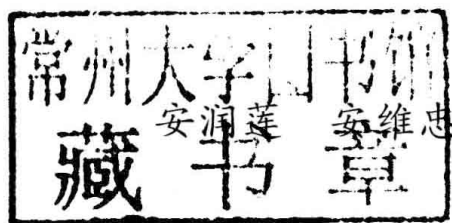 常州大学图书馆
安润莲 安维忠
藏书章